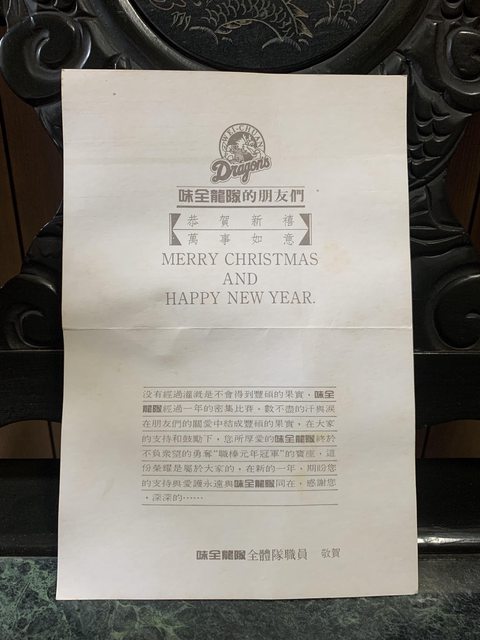 WEI-CHUAN
Dragons
味全龍隊的朋友們
恭賀新禧
萬事如意
MERRY CHRISTMAS
AND
HAPPY NEW YEAR.
沒有經過灌溉是不會得到豐碩的果實，味全
龍隊經過一年的密集比賽，數不盡的汗與淚
在朋友們的關愛中結成豐碩的果實，在大家
的支持和鼓勵下，您所厚愛的味全龍隊終於
不負衆望的勇奪"職棒元年冠軍"的寶座，這
份榮耀是屬於大家的，在新的一年，期盼您
的支持與愛護永遠與味全龍隊同在，感謝您
，深深的⋯⋯
味全龍隊全體隊職員　敬賀